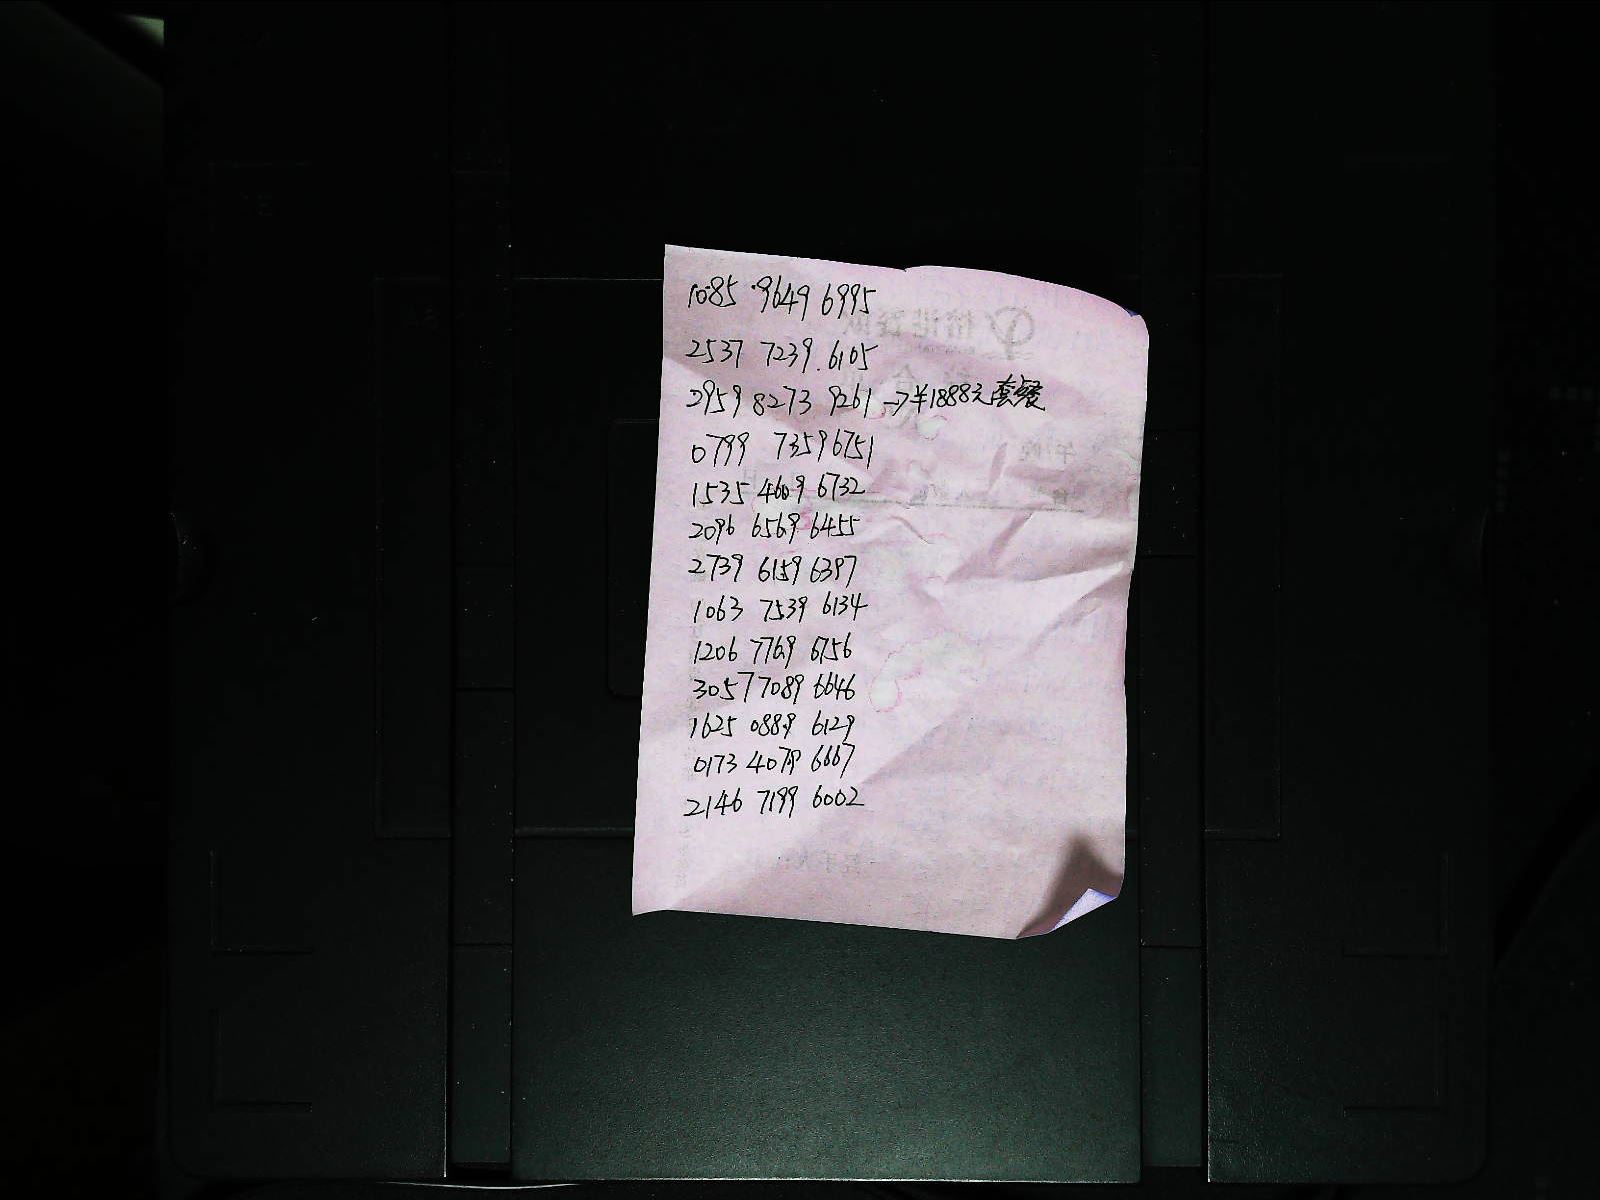 1085 9649 6995
2537 7239 6105
2959 8273 9261 →¥1888元套餐
0799 7359 6751
1535 4609 6732
2096 6569 6455
2739 6159 6397
1063 7539 6134
1206 7769 6756
3057 7089 6646
1625 0889 6129
0173 4079 6667
2146 7199 6002